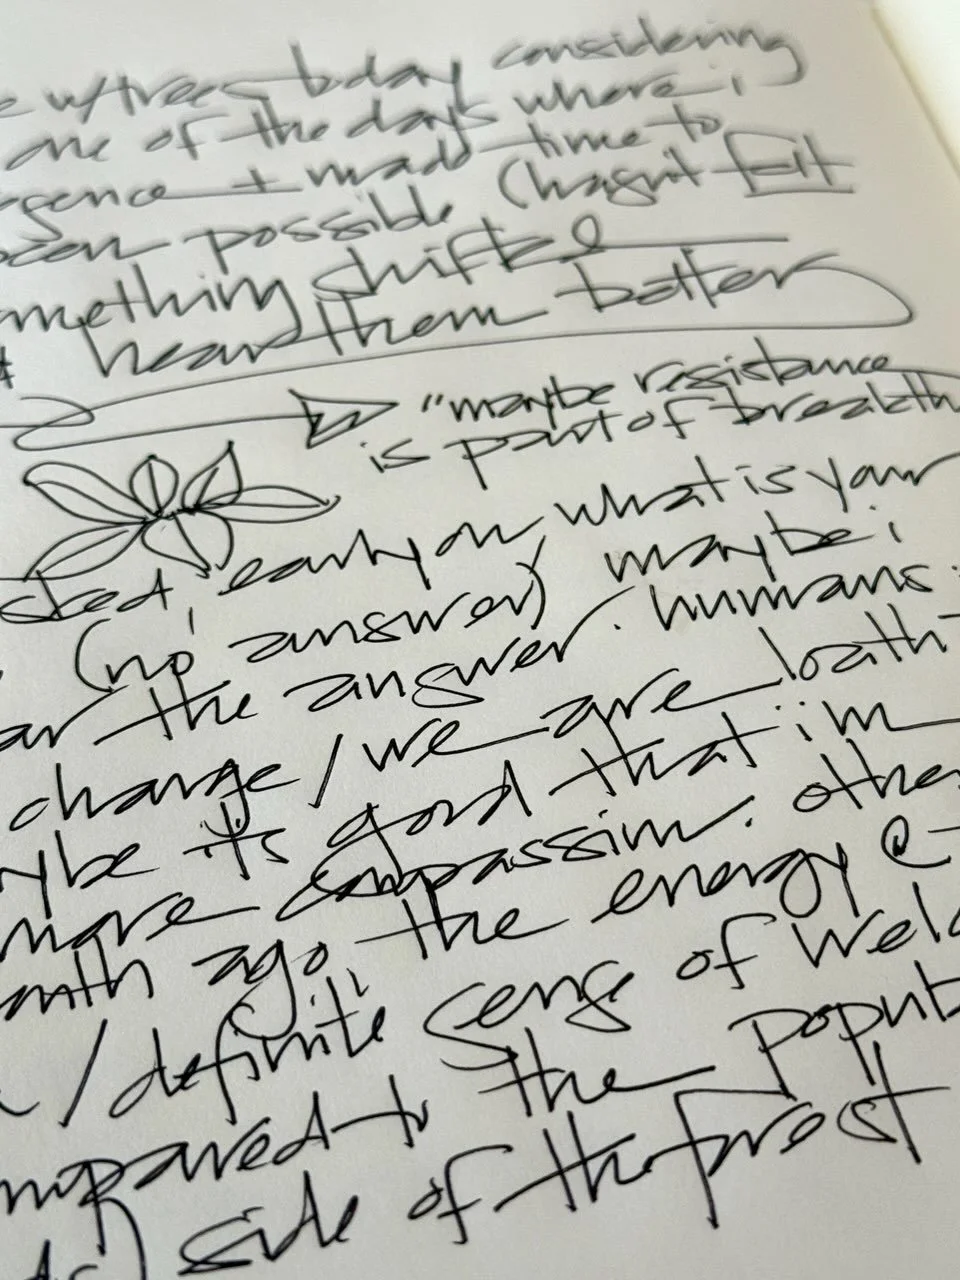 e w/trees today considering
one of the days where i
gence + made time to
been possible (hasn't felt
mething shifted
hear them better
"maybe resistance
is part of breakth
sked, early on, what is your
(no answer) maybe i
ar the answer. humans
change / we are loath
ybe it's good that i'm
more compassion. othe
onth ago, the energy @
/ definite sense of welc
mpared to the popul
side of the frost